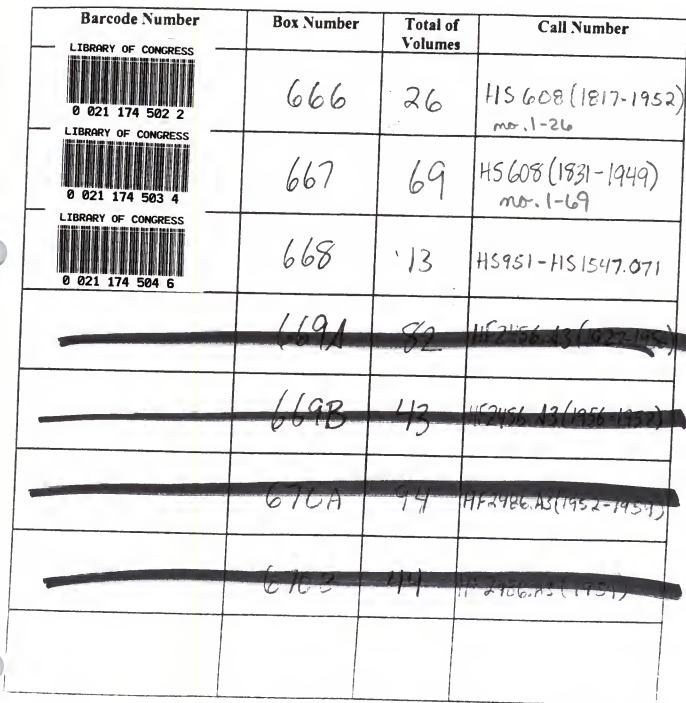 Barcode Number Box Number Total of Volumes Call Number
LIBRARY OF CONGRESS
0 021 174 502 2
666 26 HS 608 (1817-1952)
no. 1-26
LIBRARY OF CONGRESS
0 021 174 503 4
667 69 HS 608 (1831-1949)
no. 1-69
LIBRARY OF CONGRESS
0 021 174 504 6
668 13 HS951-HS1547.071
669A 82
669B 43
670A 94 HF2486.A3(1952-1954)
670B 44